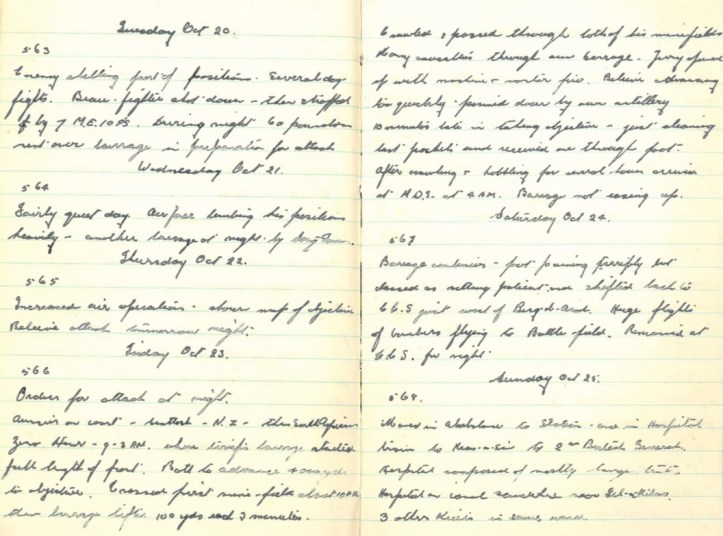 Tuesday Oct 20.
563
Enemy shelling part of positions. Several dog
fights. Beau-fighter shot down - then strafed
by 7 M.E. 109s. During night 60 pounders
sent over barrage in preparation for attack
Wednesday Oct 21.
564
Fairly quiet day. Air force bombing his positions
heavily - another barrage at night by
Thursday Oct 22.
565
Increased air operation - shown map of objective
Believe attack tomorrow night.
Friday Oct 23.
566
Orders for attack at night.
on coast - - N.Z - then South African
Zero Hour - 9-30 P.M. when terrific barrage started
full length of front. Batt to advance
to objective. Crossed first mine-field about
then barrage lifted 100 yds each 3 minutes.
Crawled & passed through both of his minefields
Many casualties through our barrage. Jerry opened
up with machine & mortar fire. Believe advancing
too quickly - pinned down by our artillery
10 minutes late in taking objective - just cleaning
last pockets and received one through foot.
After crawling & hobbling for several hours arrived
at A.D.S. at 4 A.M. Barrage not easing up.
Saturday Oct 24.
567
Barrage continues - foot paining terrifly but
classed as sitting patient and shifted back to
C.C.S just west of Burg-el-Arab. Huge flights
of bombers flying to Battle field. Remained at
C.C.S. for night
Sunday Oct 25.
568.
Moved in Ambulance to Station - and in Hospital
train to to 2nd British General.
Hospital composed of mostly large tents.
Hospital on canal somewhere near
3 other Kiwis in same ward.